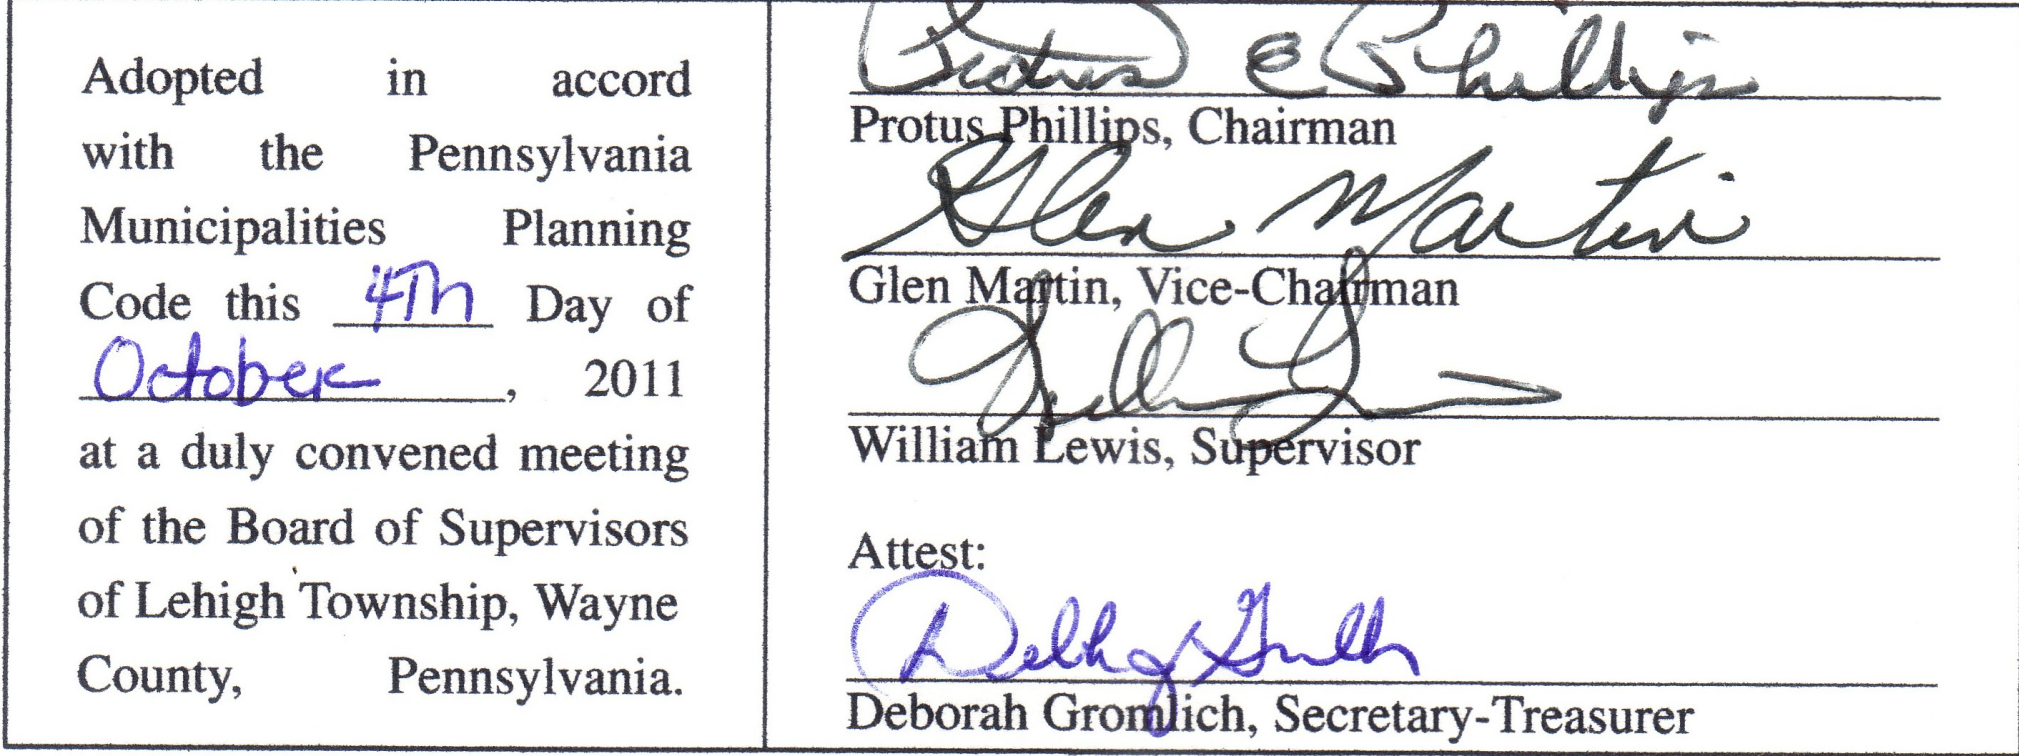 Adopted in accord
with the Pennsylvania
Municipalities Planning
Code this 4Th Day of
October, 2011
at a duly convened meeting
of the Board of Supervisors
of Lehigh Township, Wayne
County, Pennsylvania.
Protus E Phillips
Protus Phillips, Chairman
Glen Martin
Glen Martin, Vice-Chairman
William Lewis, Supervisor
Attest:
Debby
Deborah Gromlich, Secretary-Treasurer